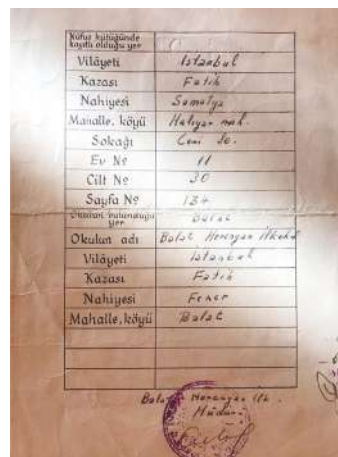 Nüfus kütüğünde
kayıtlı olduğu yer
Vilâyeti İstanbul
Kazası Fatih
Nahiyesi Samatya
Mahalle, köyü mah.
Sokağı Cami So.
Ev № 11
Cilt № 30
Sayfa № 134
Okulun bulunduğu
yer Balat
Okulun adı Balat Horenyan İlkokul
Vilâyeti İstanbul
Kazası Fatih
Nahiyesi Fener
Mahalle, köyü Balat
Balat Horenyan İlk.
Müdürü